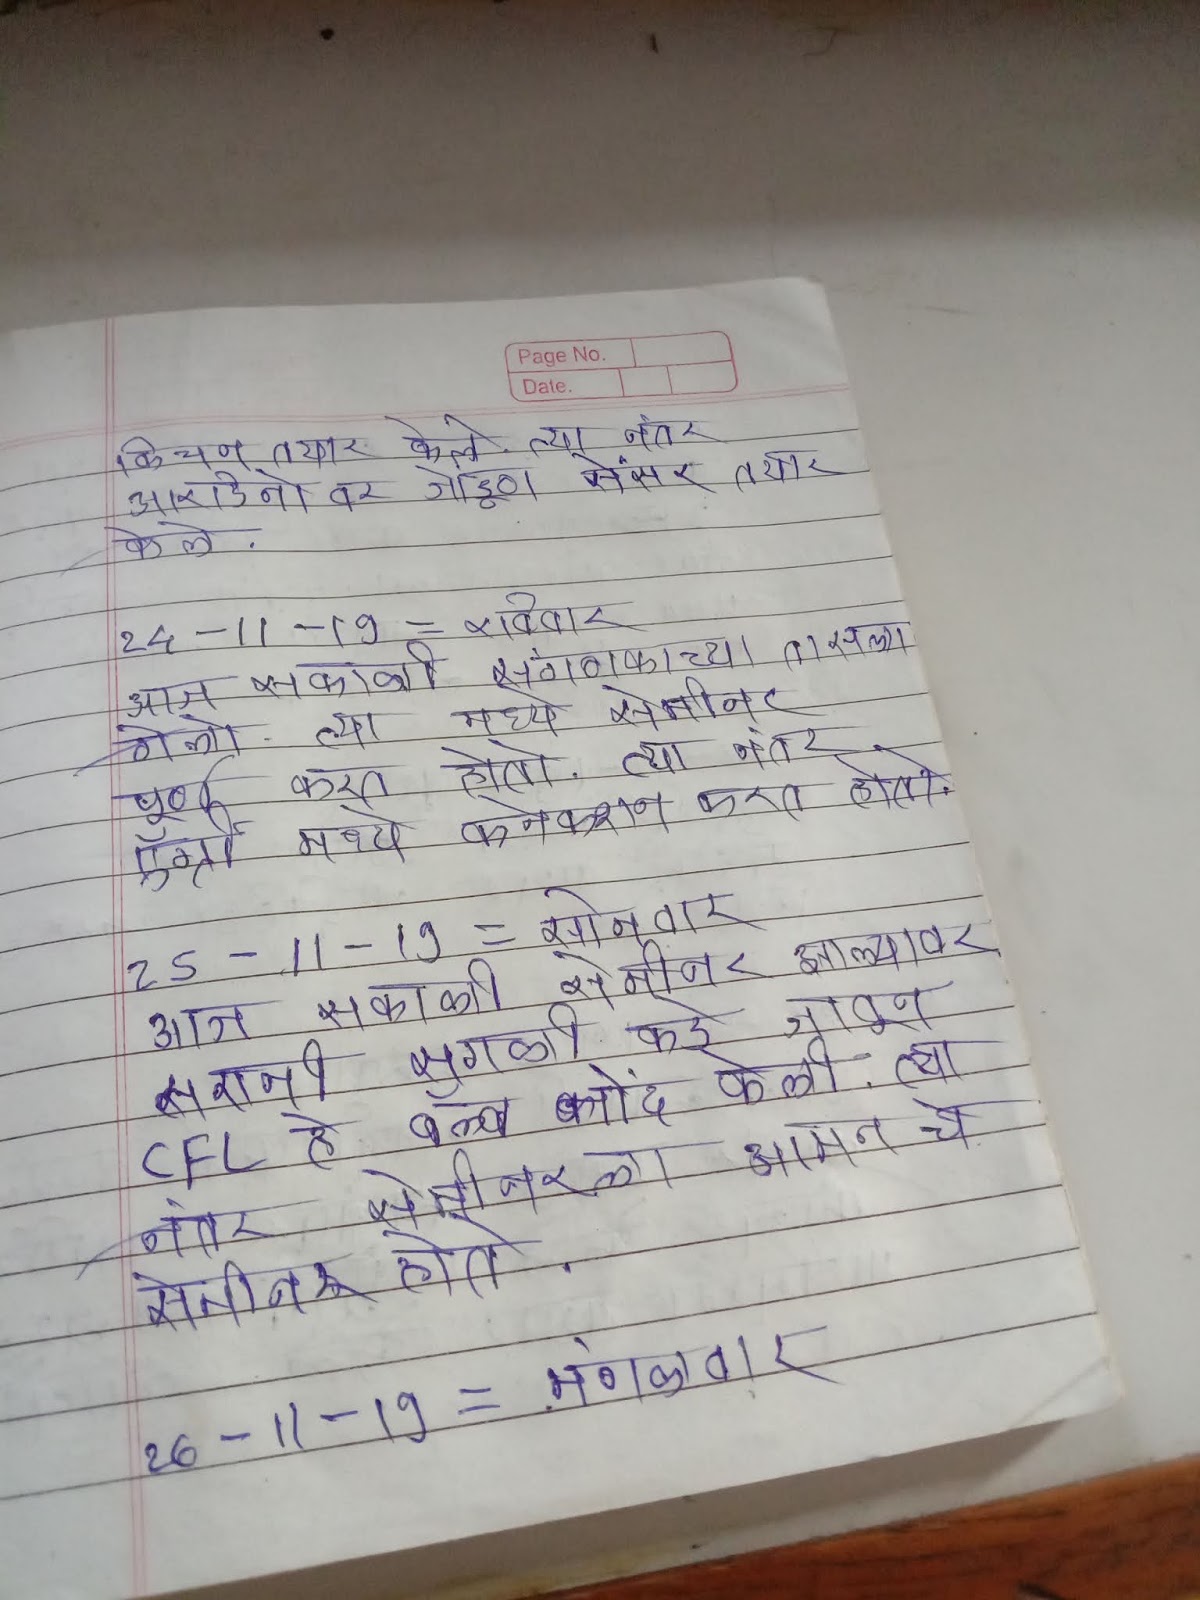 Page No.
Date.
कियन तयार केले. त्या नंतर
आराडिनो वर जोडून सेंसर तयार
केले.
24-11-19 = रविवार
आज सकाळी संगणकाच्या तासला
गेलो. त्या मध्ये सेमीनर
पूर्ण करत होतो. त्या नंतर
मध्ये कनेकशन करत होतो.
25-11-19 = सोमवार
आज सकाळी सेमीनर झाल्यावर
सरानी सगळी कडे जावून
CFL हे बल्ब नोंद केली. त्या
नंतर सेमीनरला आमन चे
सेमीनर होते.
26-11-19 = मंगळवार